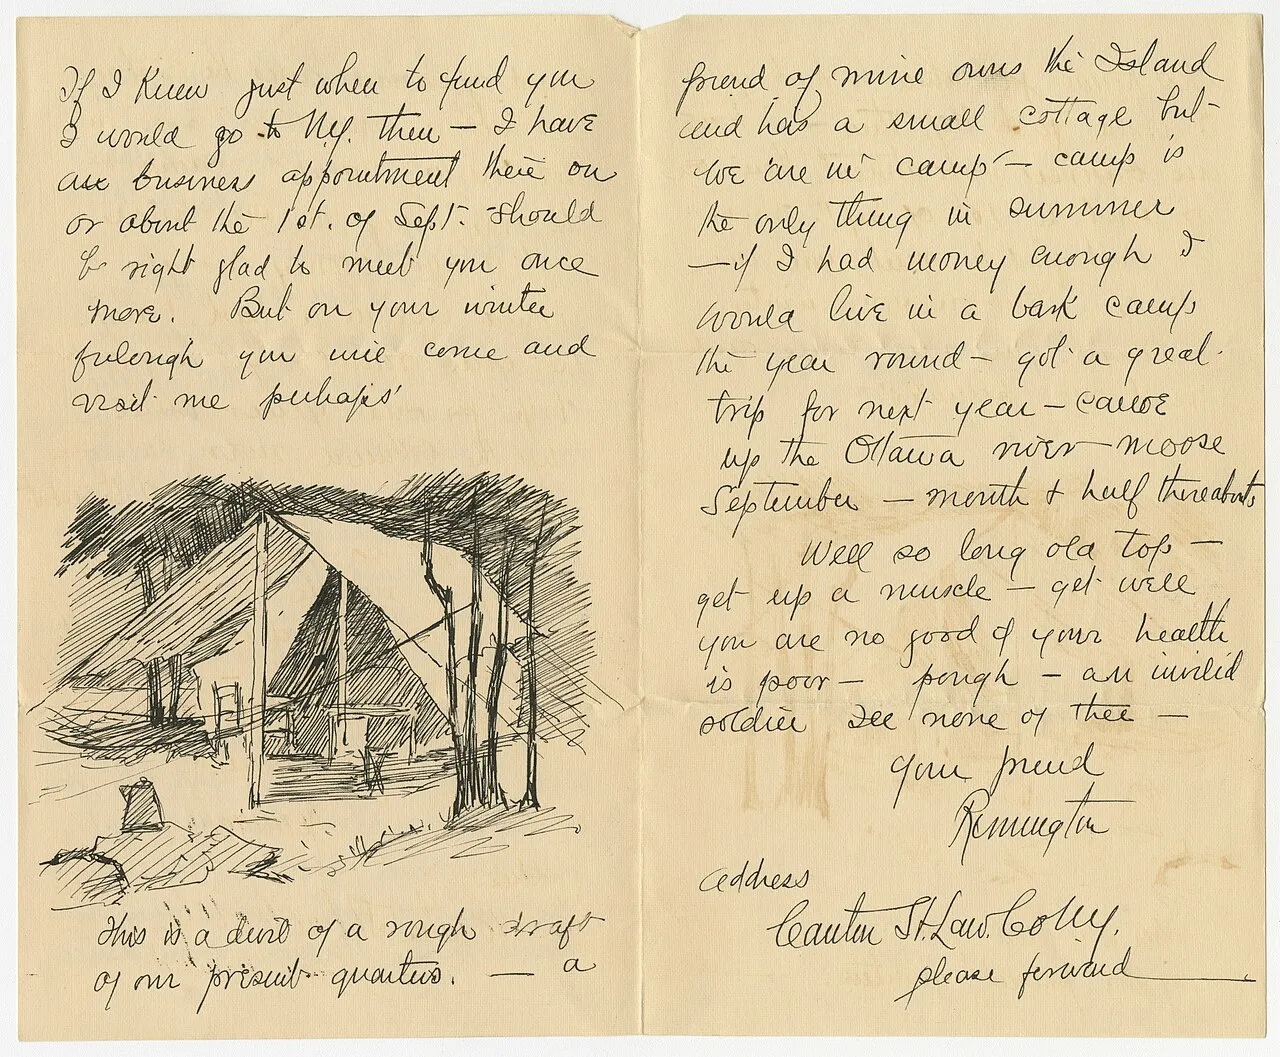 If I Knew just when to find you
I would go to N.y. then — I have
a business appointment there on
or about the 1st. of Sept. should
be right glad to meet you once
more. But on your winter
fulough you will come and
visit me perhaps'
This is a duit of a rough draft
of our present quarters. — a
friend of mine owns the Island
and has a small cottage but
we are in camp — camp is
the only thing in summer
— if I had money enough I
would live in a bark camp
the year round — got a great
trip for next year — canoe
up the Ottawa river — moose
September — month & half thereabouts
Well so long old top —
get up a muscle — get well
you are no good if your health
is poor — pough — an invilid
soldier see none of thee —
Your friend
Remington
address
Canton St. Law. Co N.y.
please forward